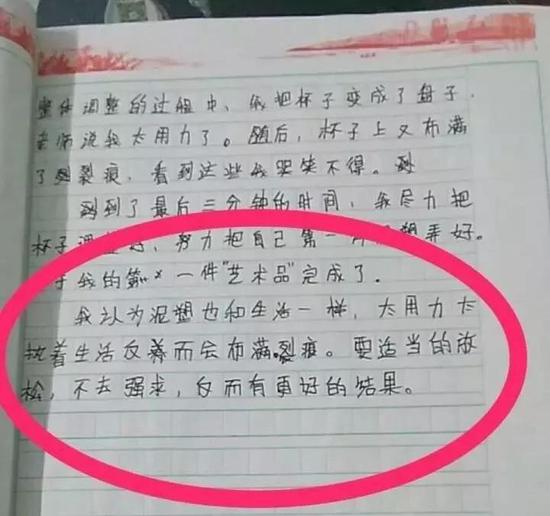 整体调整的过程中，我把杯子变成了盘子，
老师说我太用力了。随后，杯子上又布满
了裂痕，看到这些我哭笑不得。
到了最后三分钟的时间，我尽力把
杯子调整好，努力把自己第一件泥塑弄好。
于我的第一件"艺术品"完成了。
我认为泥塑也和生活一样，太用力太
执着生活反而会布满裂痕。要适当的放
松，不去强求，反而有更好的结果。